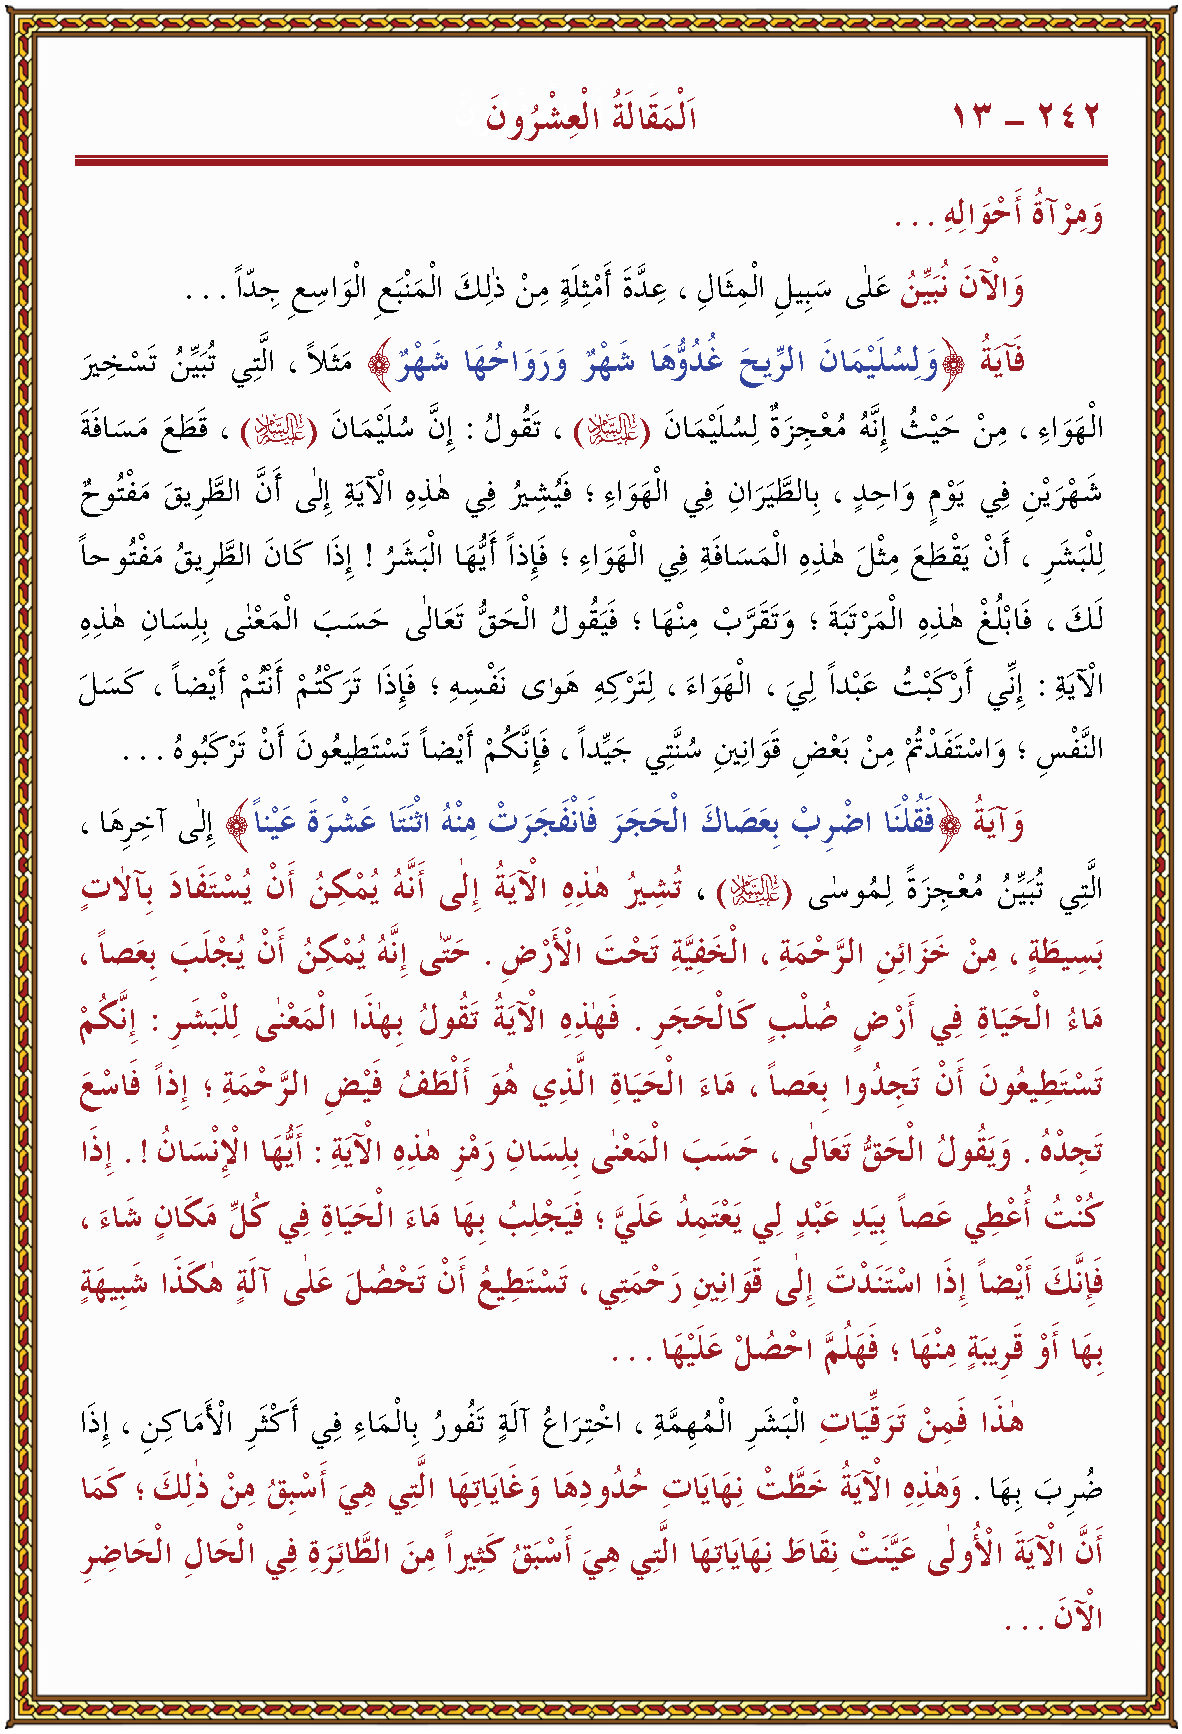 ٢٤٢ – ١٣ اَلْمَقَالَةُ الْعِشْرُونَ
وَمِرْآةُ أَحْوَالِهِ . . .
وَالْآنَ نُبَيِّنُ عَلٰى سَبِيلِ الْمِثَالِ ، عِدَّةَ أَمْثِلَةٍ مِنْ ذٰلِكَ الْمَنْبَعِ الْوَاسِعِ جِدّاً . . .
فَآيَةُ ﴿وَلِسُلَيْمَانَ الرِّيحَ غُدُوُّهَا شَهْرٌ وَرَوَاحُهَا شَهْرٌ﴾ مَثَلاً ، الَّتِي تُبَيِّنُ تَسْخِيرَ
الْهَوَاءِ ، مِنْ حَيْثُ إِنَّهُ مُعْجِزَةٌ لِسُلَيْمَانَ (عليه السلام) ، تَقُولُ : إِنَّ سُلَيْمَانَ (عليه السلام) ، قَطَعَ مَسَافَةَ
شَهْرَيْنِ فِي يَوْمٍ وَاحِدٍ ، بِالطَّيَرَانِ فِي الْهَوَاءِ ؛ فَيُشِيرُ فِي هٰذِهِ الْآيَةِ إِلٰى أَنَّ الطَّرِيقَ مَفْتُوحٌ
لِلْبَشَرِ ، أَنْ يَقْطَعَ مِثْلَ هٰذِهِ الْمَسَافَةِ فِي الْهَوَاءِ ؛ فَإِذاً أَيُّهَا الْبَشَرُ ! إِذَا كَانَ الطَّرِيقُ مَفْتُوحاً
لَكَ ، فَابْلُغْ هٰذِهِ الْمَرْتَبَةَ ؛ وَتَقَرَّبْ مِنْهَا ؛ فَيَقُولُ الْحَقُّ تَعَالٰى حَسَبَ الْمَعْنٰى بِلِسَانِ هٰذِهِ
الْآيَةِ : إِنِّي أَرْكَبْتُ عَبْداً لِيَ ، الْهَوَاءَ ، لِتَرْكِهِ هَوٰى نَفْسِهِ ؛ فَإِذَا تَرَكْتُمْ أَنْتُمْ أَيْضاً ، كَسَلَ
النَّفْسِ ؛ وَاسْتَفَدْتُمْ مِنْ بَعْضِ قَوَانِينِ سُنَّتِي جَيِّداً ، فَإِنَّكُمْ أَيْضاً تَسْتَطِيعُونَ أَنْ تَرْكَبُوهُ . . .
وَآيَةُ ﴿فَقُلْنَا اضْرِبْ بِعَصَاكَ الْحَجَرَ فَانْفَجَرَتْ مِنْهُ اثْنَتَا عَشْرَةَ عَيْناً﴾ إِلٰى آخِرِهَا ،
الَّتِي تُبَيِّنُ مُعْجِزَةً لِمُوسٰى (عليه السلام) ، تُشِيرُ هٰذِهِ الْآيَةُ إِلٰى أَنَّهُ يُمْكِنُ أَنْ يُسْتَفَادَ بِآلَاتٍ
بَسِيطَةٍ ، مِنْ خَزَائِنِ الرَّحْمَةِ ، الْخَفِيَّةِ تَحْتَ الْأَرْضِ . حَتّٰى إِنَّهُ يُمْكِنُ أَنْ يُجْلَبَ بِعَصاً ،
مَاءُ الْحَيَاةِ فِي أَرْضٍ صُلْبٍ كَالْحَجَرِ . فَهٰذِهِ الْآيَةُ تَقُولُ بِهٰذَا الْمَعْنٰى لِلْبَشَرِ : إِنَّكُمْ
تَسْتَطِيعُونَ أَنْ تَجِدُوا بِعَصاً ، مَاءَ الْحَيَاةِ الَّذِي هُوَ أَلْطَفُ فَيْضِ الرَّحْمَةِ ؛ إِذاً فَاسْعَ
تَجِدْهُ . وَيَقُولُ الْحَقُّ تَعَالٰى ، حَسَبَ الْمَعْنٰى بِلِسَانِ رَمْزِ هٰذِهِ الْآيَةِ : أَيُّهَا الْإِنْسَانُ ! . إِذَا
كُنْتُ أُعْطِي عَصاً بِيَدِ عَبْدٍ لِي يَعْتَمِدُ عَلَيَّ ؛ فَيَجْلِبُ بِهَا مَاءَ الْحَيَاةِ فِي كُلِّ مَكَانٍ شَاءَ ،
فَإِنَّكَ أَيْضاً إِذَا اسْتَنَدْتَ إِلٰى قَوَانِينِ رَحْمَتِي ، تَسْتَطِيعُ أَنْ تَحْصُلَ عَلٰى آلَةٍ هٰكَذَا شَبِيهَةٍ
بِهَا أَوْ قَرِيبَةٍ مِنْهَا ؛ فَهَلُمَّ احْصُلْ عَلَيْهَا . . .
هٰذَا فَمِنْ تَرَقِّيَاتِ الْبَشَرِ الْمُهِمَّةِ ، اخْتِرَاعُ آلَةٍ تَفُورُ بِالْمَاءِ فِي أَكْثَرِ الْأَمَاكِنِ ، إِذَا
ضُرِبَ بِهَا . وَهٰذِهِ الْآيَةُ خَطَّتْ نِهَايَاتِ حُدُودِهَا وَغَايَاتِهَا الَّتِي هِيَ أَسْبِقُ مِنْ ذٰلِكَ ؛ كَمَا
أَنَّ الْآيَةَ الْأُولٰى عَيَّنَتْ نِقَاطَ نِهَايَاتِهَا الَّتِي هِيَ أَسْبَقُ كَثِيراً مِنَ الطَّائِرَةِ فِي الْحَالِ الْحَاضِرِ
الْآنَ . . .